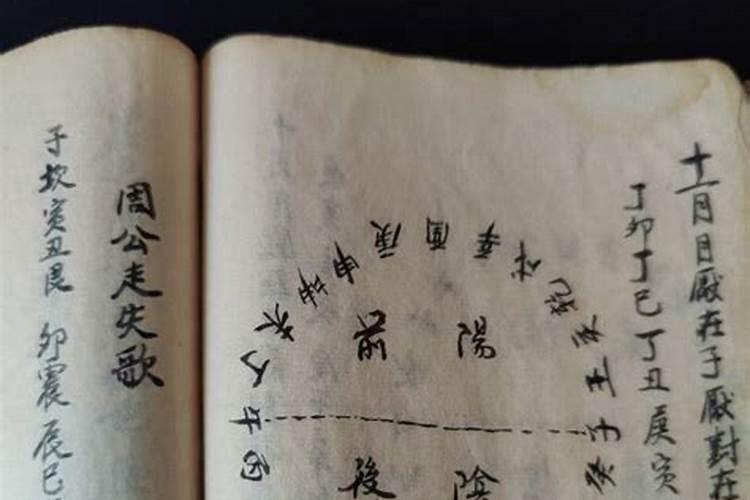 十一月月厭在子厭對在
丁卯丁巳丁丑庚寅
陽
後
陰
午
丁
未
坤
申
庚
酉
辛
戌
乾
亥
壬
子
癸
丙
周公走失歌
子坎寅丑艮 卯震辰巳